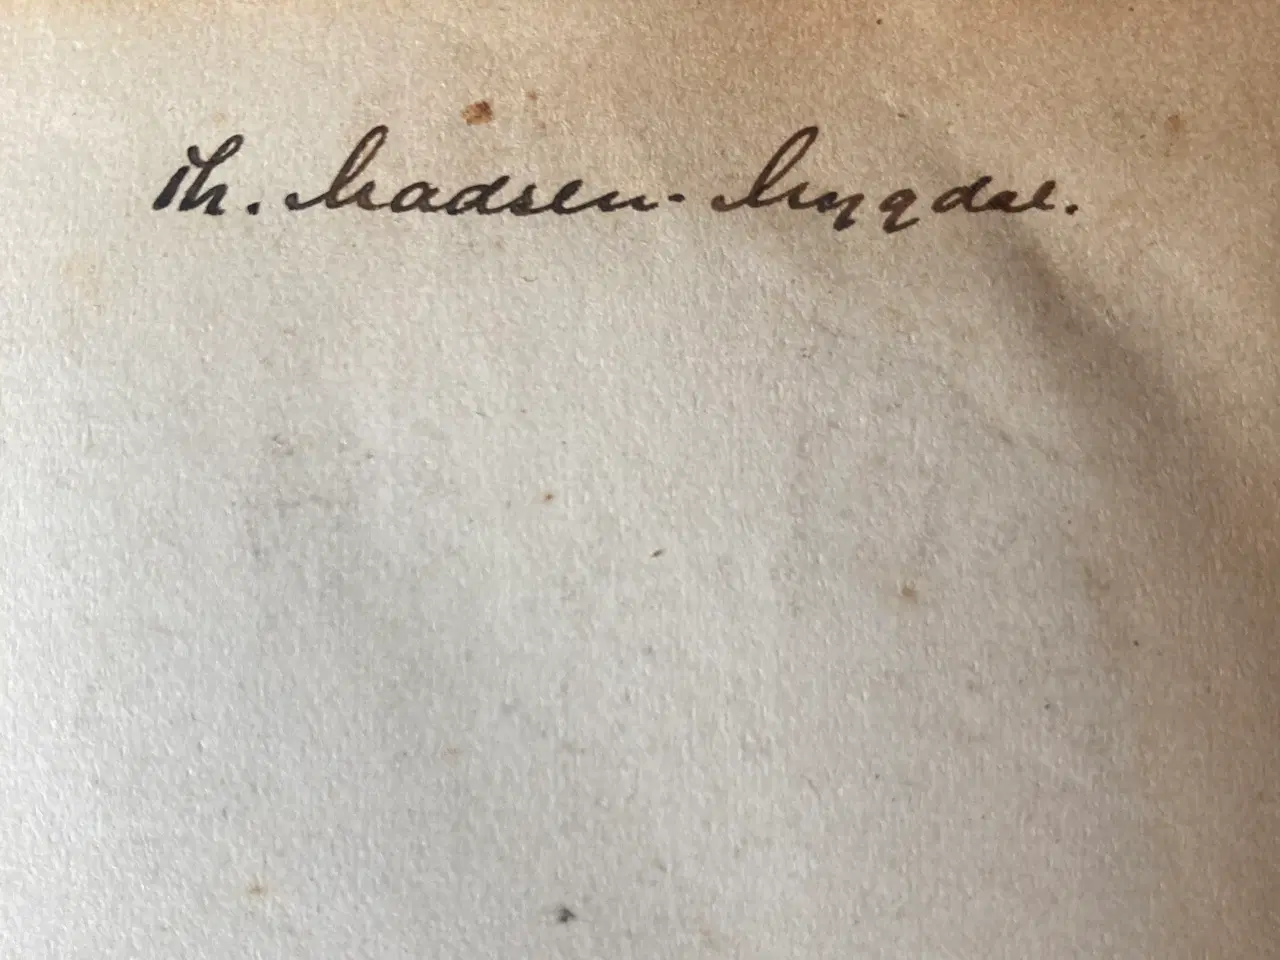 Th. Madsen-Mygdal.